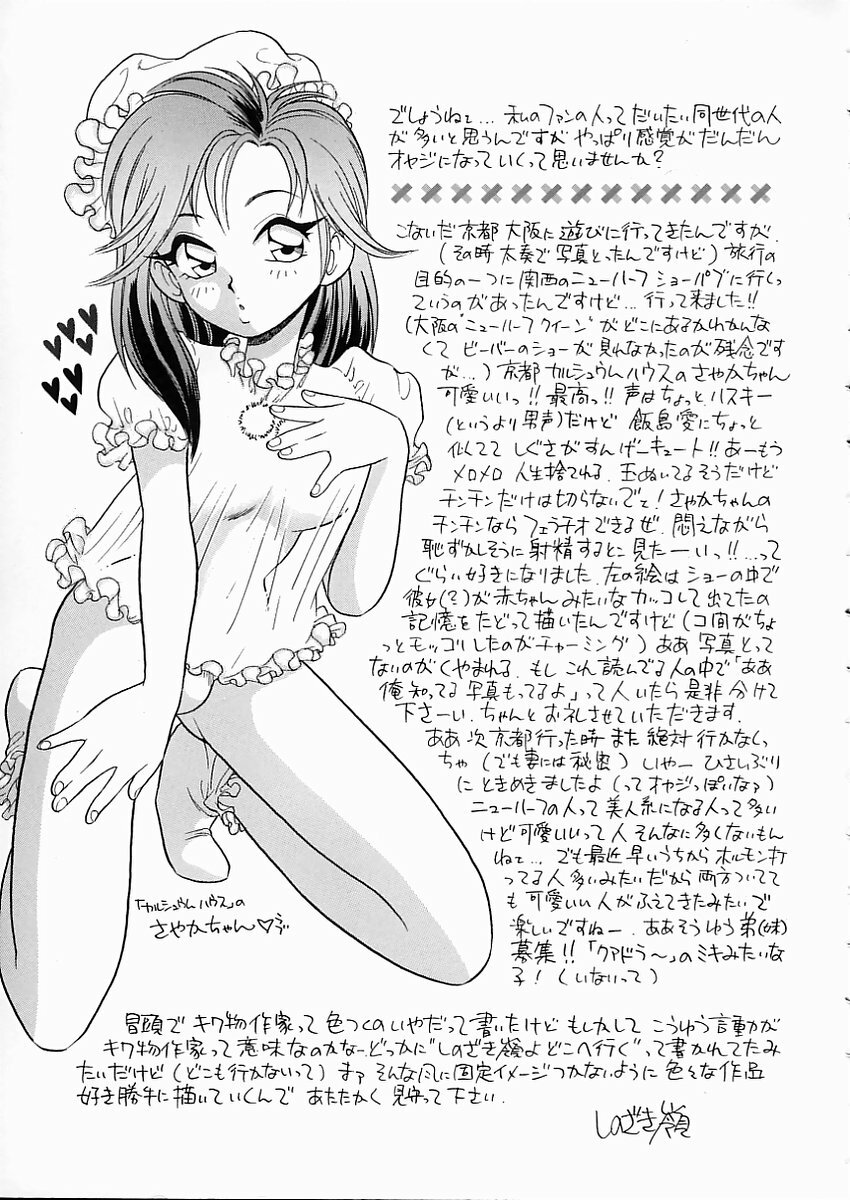 でしょうねェ… 私のファンの人ってだいたい同世代の人
が多いと思うんですが やっぱり感覚がだんだん
オヤジになっていくって思いませんか？
こないだ京都 大阪に遊びに行ってきたんですが、
(その時 太秦で写真とったんですけど) 旅行の
目的の一つに関西のニューハーフショーパブに行くっ
ていうのがあったんですけど… 行って来ました!!
(大阪の"ニューハーフクィーン"がどこにあるかわかんな
くて ビーバーのショーが見れなかったのが残念です
が…) 京都カルシュウムハウスのさやかちゃん
可愛いいっ!! 最高っ!! 声はちょっとハスキー
(というより男声)だけど 飯島愛にちょっと
似てて しぐさがすんげーキュート!! あーもう
メロメロ 人生捨てれる。玉ぬいてるそうだけど
チンチンだけは切らないでェ! さやかちゃんの
チンチンなら フェラチオできるぜ。悶えながら
恥ずかしそうに射精するとこ見たーいっ!! …って
ぐらい好きになりました。左の絵はショーの中で
彼女(?)が赤ちゃんみたいなカッコして出てたの
記憶をたどって描いたんですけど (コ間がちょ
っとモッコリしたのがチャーミング) ああ 写真とって
ないのがくやまれる。もし これ読んでる人の中で「ああ
俺知ってる 写真もってるよ」って人いたら是非分けて
下さーい。ちゃんとお礼させていただきます。
ああ 次 京都行った時 また 絶対 行かなくっ
ちゃ (でも妻には秘密) しいやー ひさしぶり
に ときめきましたよ (ってオヤジっぽいなァ)
ニューハーフの人って美人系になる人って多い
けど可愛いいって人 そんなに多くないもん
ねェ… でも最近 早いうちから ホルモン打
ってる人 多いみたいだから 両方ついてて
も可愛いい人がふえてきたみたいで
楽しいですねー。ああそうゆう弟(妹)
募集!! 「クアドラ〜」のミキみたいな
子! (いないって)
「カルシュウムハウス」の
さやかちゃん♡
冒頭で キワ物作家って 色つくのいやだって書いたけど もしかして こうゆう言動が
キワ物作家って意味なのかなー。どっかに"しのざき嶺よどこへ行く"って書かれてたみ
たいだけど (どこも行かないって) まァ そんな風に固定イメージつかないように 色々な作品
好き勝手に描いていくんで あたたかく 見守って下さい。
しのざき嶺